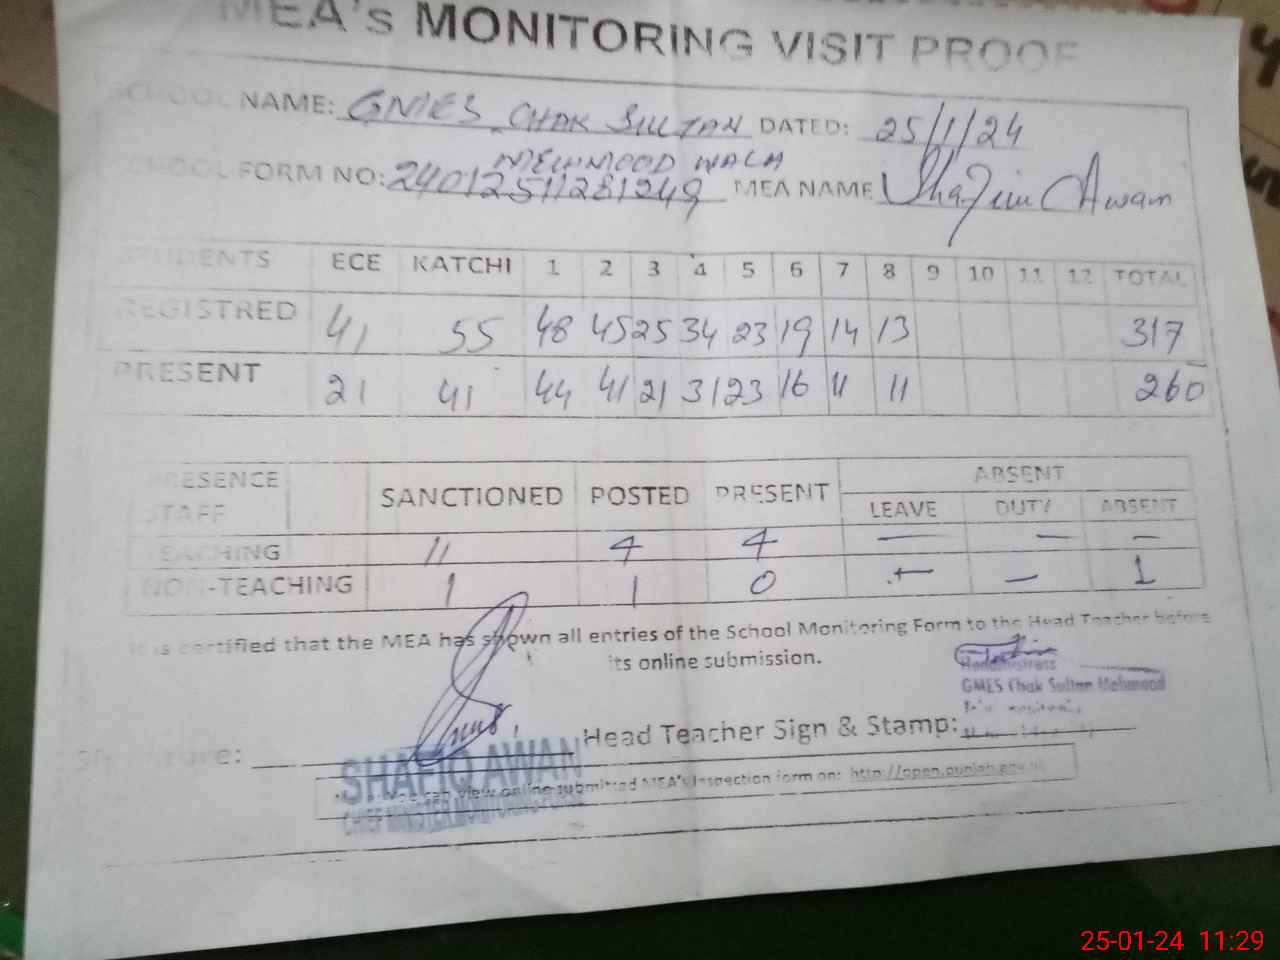 MEA's MONITORING VISIT PROOF
SCHOOL NAME: GMES CHAK SULTAN DATED: 25/1/24
MEHMOOD WALA
SCHOOL FORM NO: 24012511281249 MEA NAME Shafiq Awan
STUDENTS ECE KATCHI 1 2 3 4 5 6 7 8 9 10 11 12 TOTAL
REGISTRED 41 55 48 45 25 34 23 19 14 13 317
PRESENT 21 41 44 41 21 31 23 16 11 11 260
PRESENCE STAFF SANCTIONED POSTED PRESENT ABSENT
LEAVE DUTY ABSENT
TEACHING 11 4 4 — — —
NON-TEACHING 1 1 0 — — 1
It is certified that the MEA has shown all entries of the School Monitoring Form to the Head Teacher before
its online submission.
Headmistress
GMES Chak Sultan Mehmood
Signature: Head Teacher Sign & Stamp:
SHAFIQ AWAN
view online submitted MEA's Inspection form on: http://open.punjab.gov.pk
CHIEF MINISTER MONITORING FORCE
25-01-24 11:29